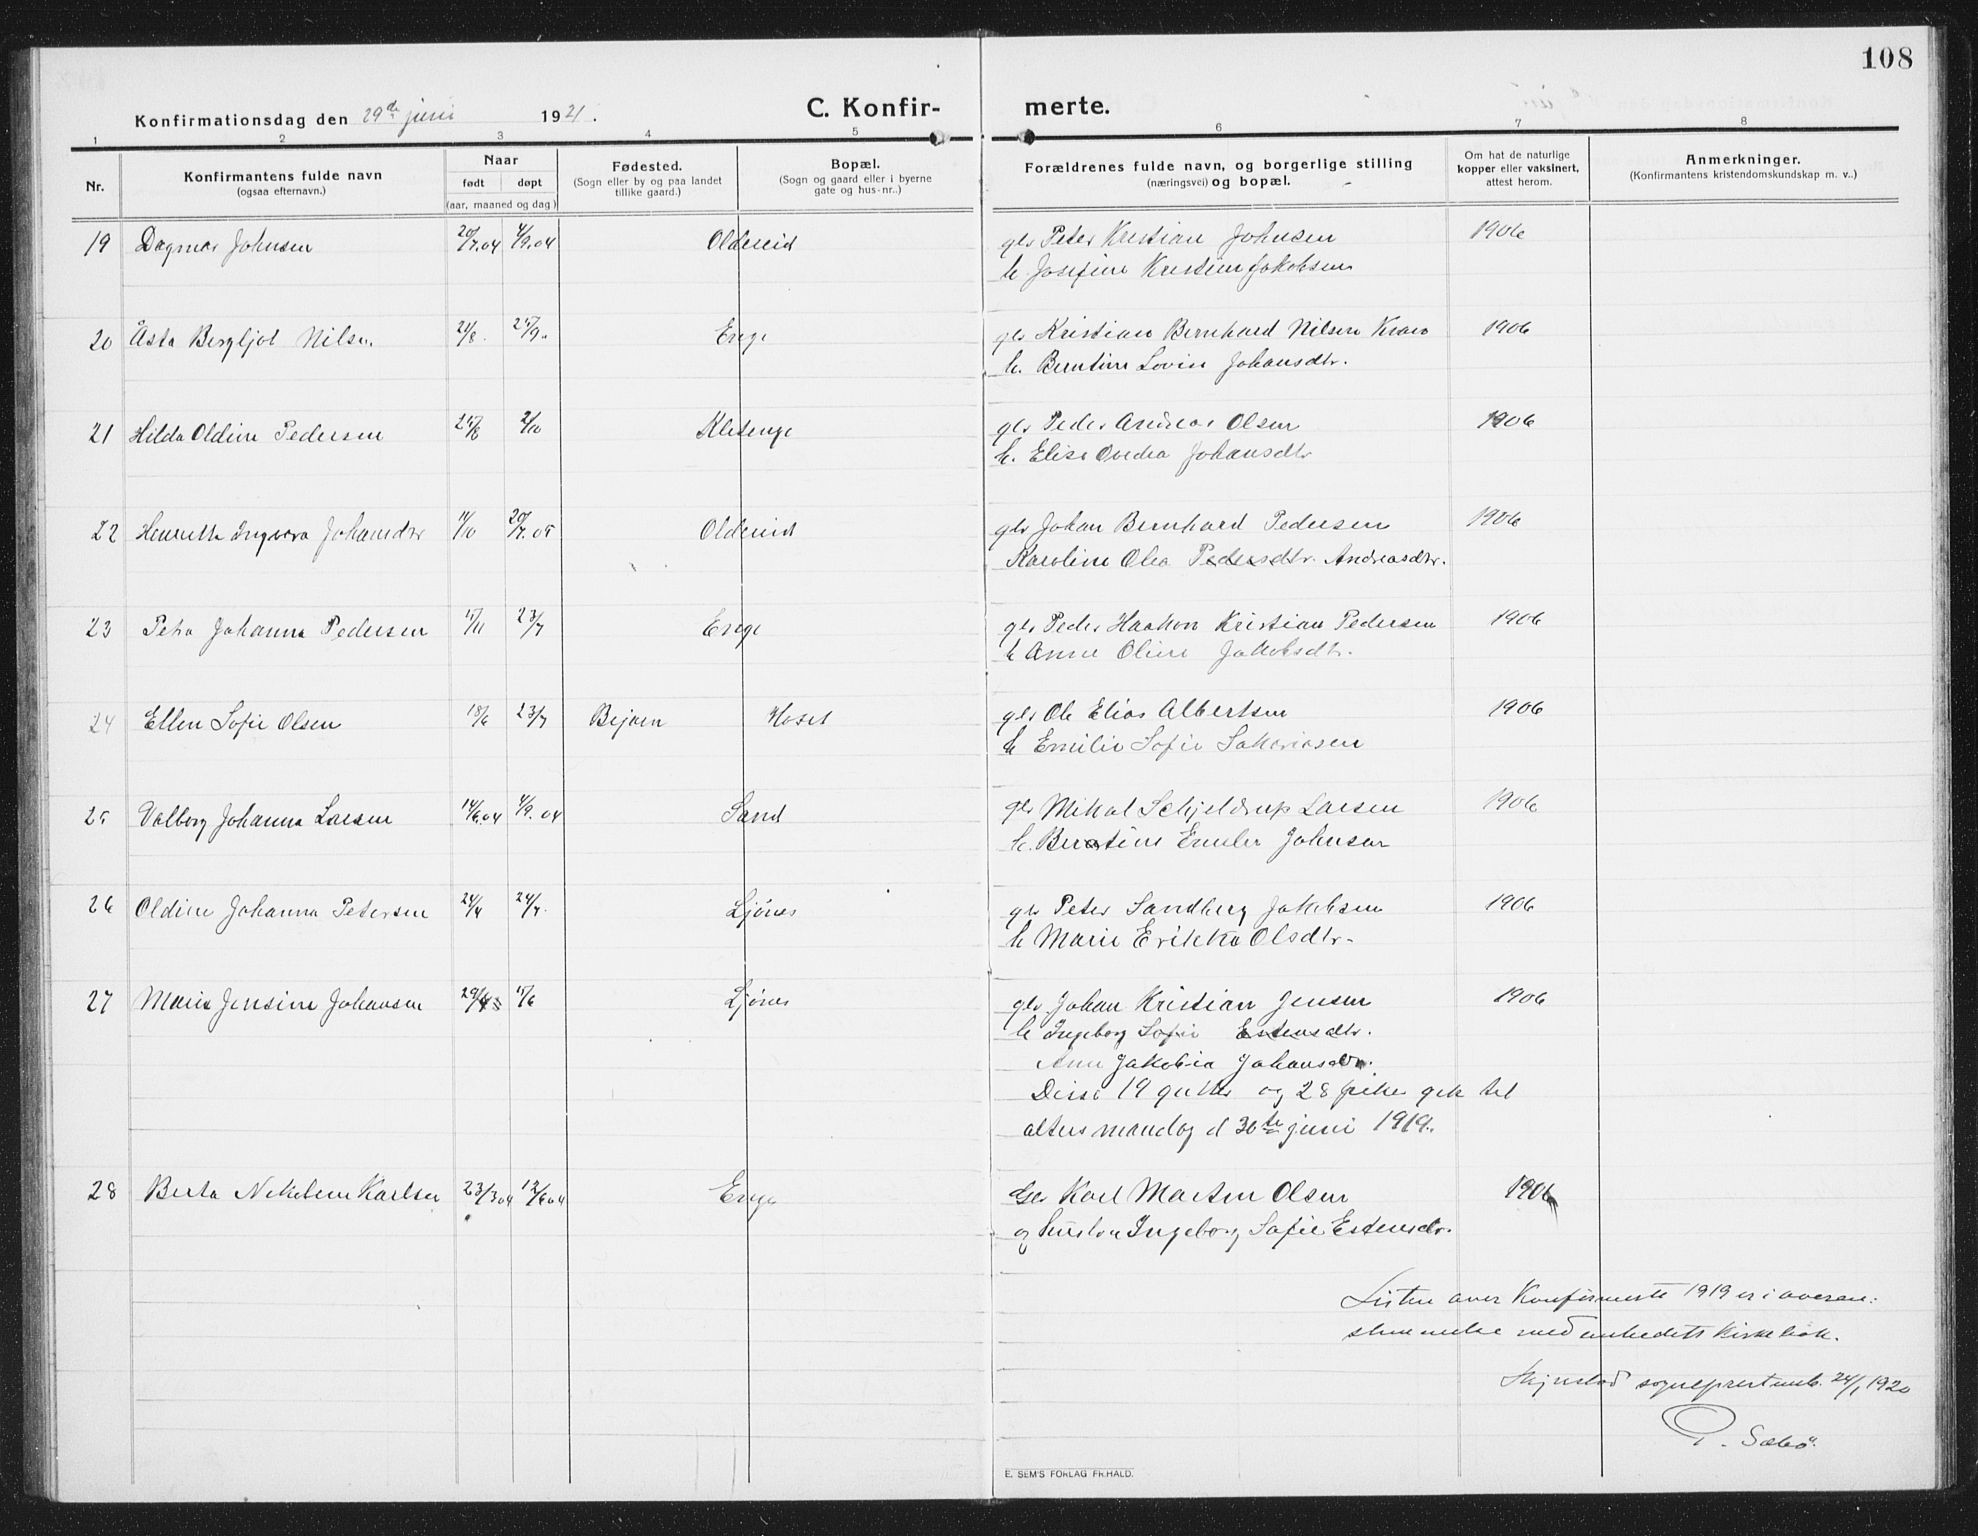 108
Konfirmationsdag den 29de juni 1921.
C. Konfir- merte.
1 2 3 4 5 6 7 8
Nr.
Konfirmantens fulde navn
(ogsaa efternavn.)
Naar
født døpt
(aar, maaned og dag)
Fødested.
(Sogn eller by og paa landet
tillike gaard.)
Bopæl.
(Sogn og gaard eller i byerne
gate og hus-nr..)
Forældrenes fulde navn, og borgerlige stilling
(næringsvei) og bopæl.
Om hat de naturlige
kopper eller vaksinert,
attest herom.
Anmerkninger.
(Konfirmantens kristendomskundskap m. v..)
19 Dagmar Johnsen 20/7.04 4/9.04 Oldereid gbr Peter Kristian Johnsen 1906
h. Josefine Kristine Jakobsen
20 Åsta Bergljot Nilsen 21/8. 25/9. Enge gbr Kristian Bernhard Nilsen 1906
h. Berntine Lovise Johansdtr.
21 Hilda Oldine Pedersen 2/10 Kletenge gbr Peder Andreas Olsen 1906
h. Elise Ovedia Johansdtr
22 Henrette Ingvara Johansdtr 11/10 20/7.05 Oldereid gbr Johan Bernhard Pedersen 1906
Karoline Olea Pedersdtr. Andreasdtr.
23 Petra Johanna Pedersen 23/7 Enge gbr Peder Haakon Kristian Pedersen 1906
h Anne Oline Jakobsdtr.
24 Ellen Sofie Olsen 18/6 23/7 Bejarn Hoset gbr Ole Elias Albertsen 1906
h Emilie Sofie Sakariasen
25 Valborg Johanna Larsen 14/6.04 4/9.04 Sand gbr Mikal Schjeldrup Larsen 1906
h. Berntine Johnsen
26 Oldine Johanna Petersen 24/4 24/7. Ljönes gbr Peter Sandberg Jakobsen 1906
h Marie Erikka Olsdtr.
27 Marie Jensine Johansen Ljönes gbr Johan Kristian Jensen 1906
h Ingeborg Sofie Estensdtr.
Ane Jakobia Johansdtr.
Disse 19 gutter og 28 piker gik til
alters mandag d 30te juni 1919.
28 Berta Nekoline Karlsen 23/3 04 12/6 04 Enge Gbr Karl Martin Olsen 1906
og hustru Ingeborg Sofie Estensdtr.
Listen over Konfirmerte 1919 er i overens:
stemmelse med embedets Kirkebok.
Skjerstad sogneprestemb. 24/1 1920
P. Sæbö.
E. SEM'S FORLAG FR.HALD.